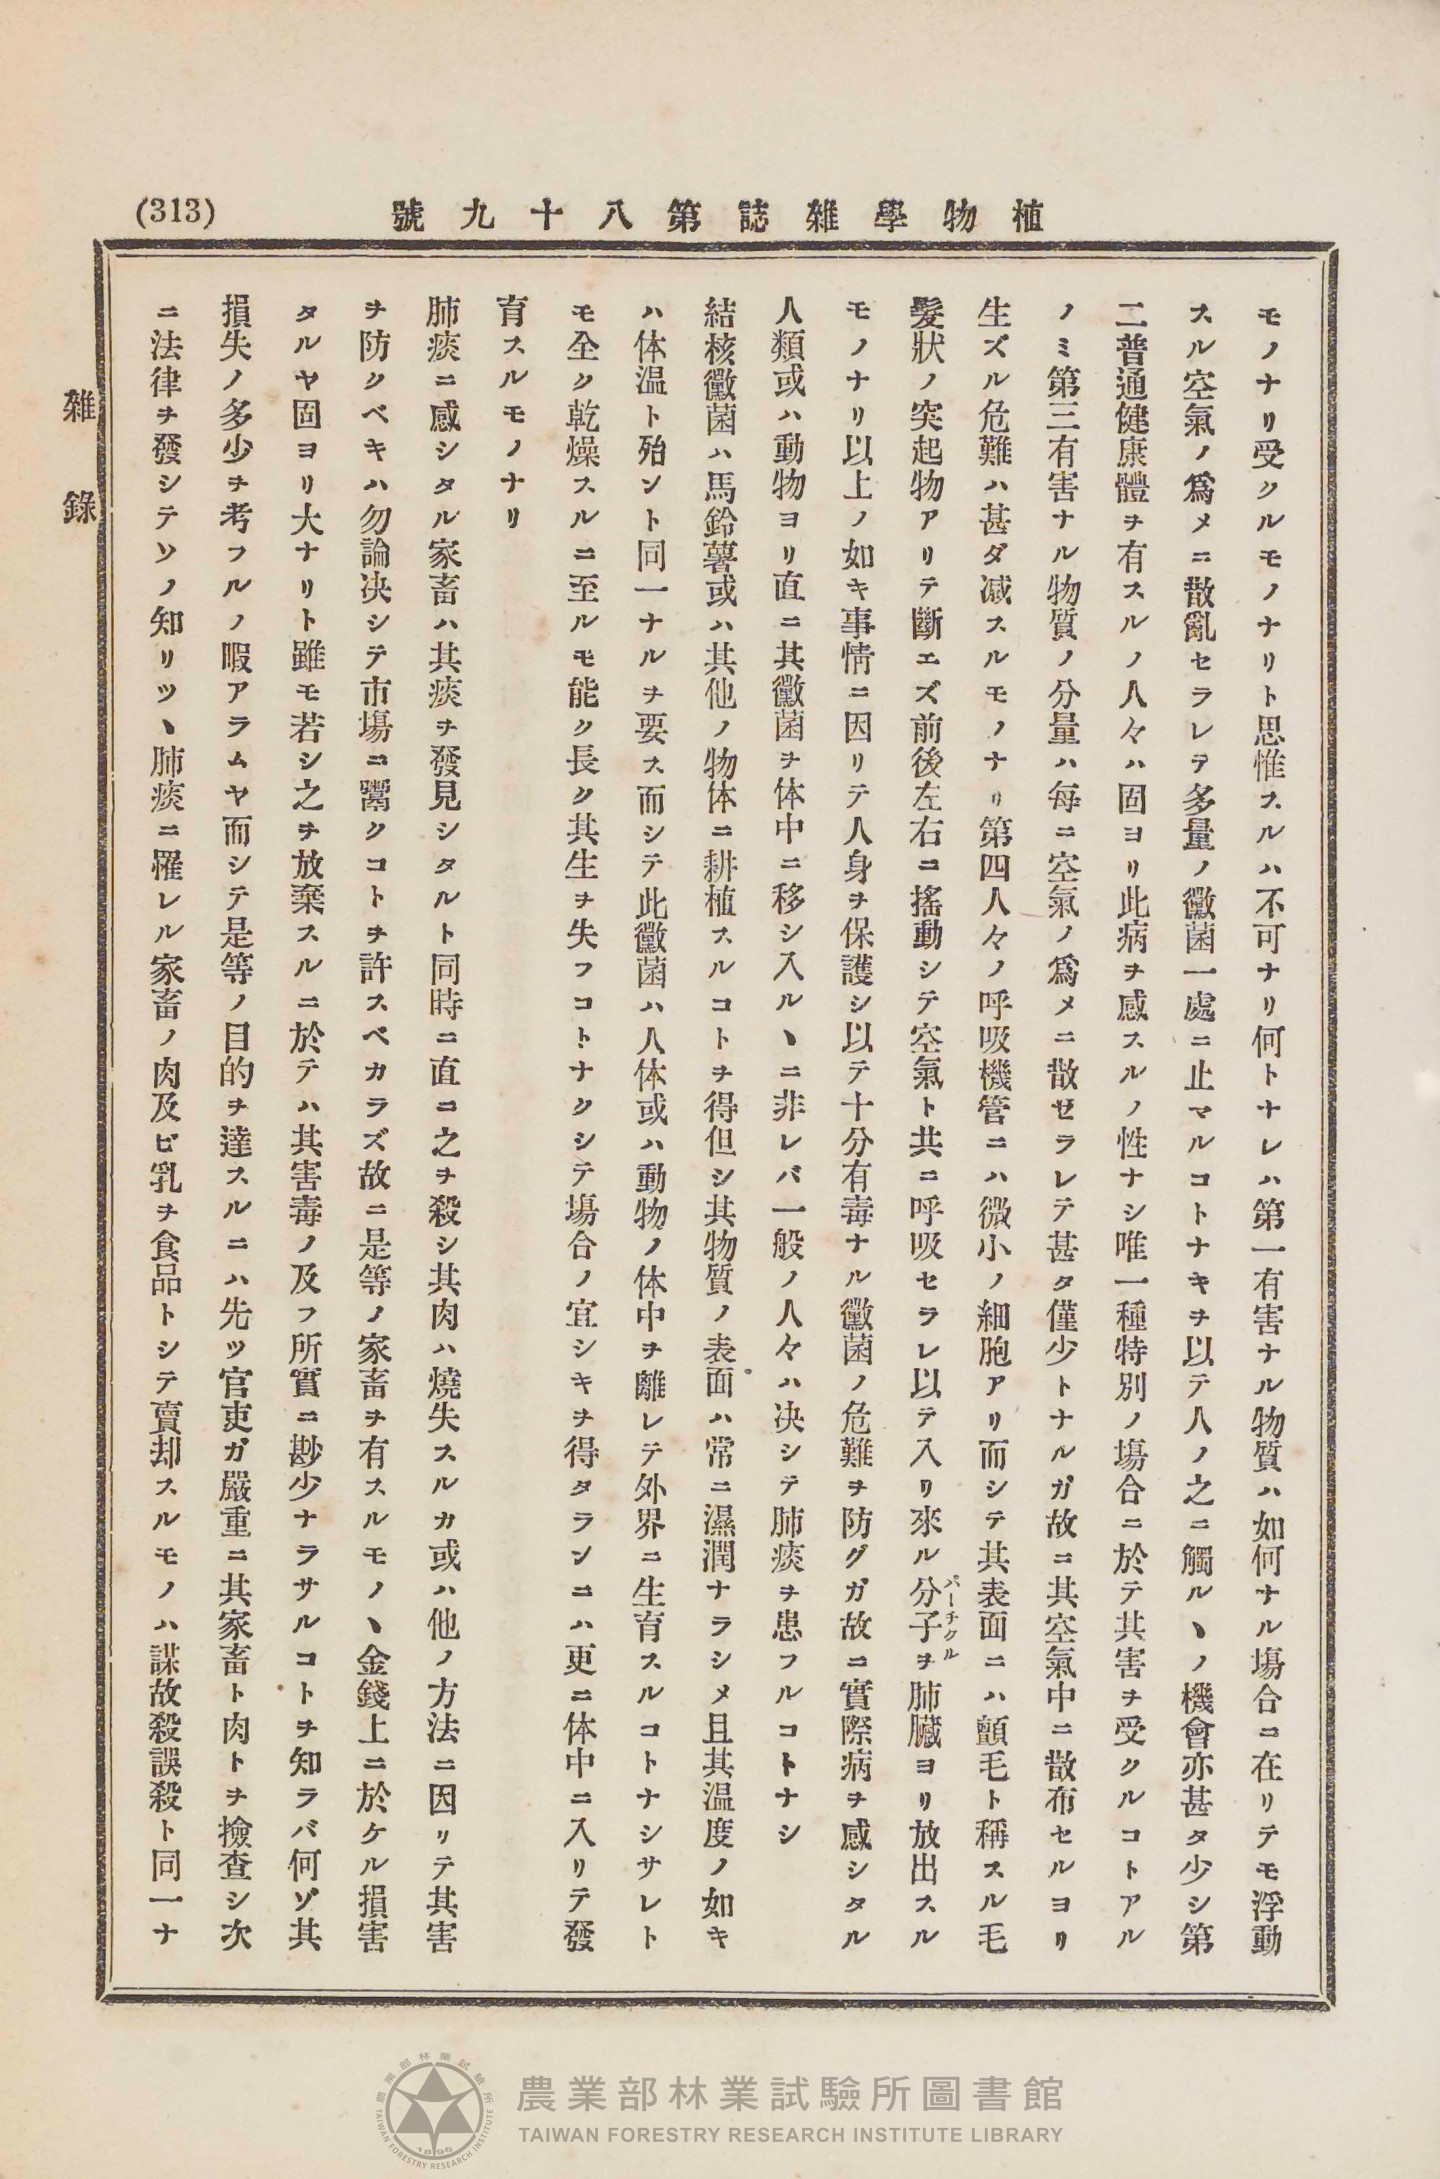 植物學雜誌第八十九號
(313)
モノナリ受クルモノナリト思惟スルハ不可ナリ何トナレハ第一有害ナル物質ハ如何ナル塲合ニ在リテモ浮動
スル空氣ノ爲メニ散亂セラレテ多量ノ黴菌一處ニ止マルコトナキヲ以テ人ノ之ニ觸ルヽノ機會亦甚タ少シ第
二普通健康體ヲ有スルノ人々ハ固ヨリ此病ヲ感スルノ性ナシ唯一種特別ノ塲合ニ於テ其害ヲ受クルコトアル
ノミ第三有害ナル物質ノ分量ハ毎ニ空氣ノ爲メニ散ゼラレテ甚タ僅少トナルガ故ニ其空氣中ニ散布セルヨリ
生ズル危難ハ甚ダ减スルモノナリ第四人々ノ呼吸機管ニハ微小ノ細胞アリ而シテ其表面ニハ顫毛ト稱スル毛
髮狀ノ突起物アリテ斷エズ前後左右ニ搖動シテ空氣ト共ニ呼吸セラレ以テ入リ來ル分子ヲ肺臟ヨリ放出スル
パーチクル
モノナリ以上ノ如キ事情ニ因リテ人身ヲ保護シ以テ十分有毒ナル黴菌ノ危難ヲ防グガ故ニ實際病ヲ感シタル
人類或ハ動物ヨリ直ニ其黴菌ヲ体中ニ移シ入ルヽニ非レバ一般ノ人々ハ决シテ肺痰ヲ患フルコトナシ
結核黴菌ハ馬鈴薯或ハ其他ノ物体ニ耕植スルコトヲ得但シ其物質ノ表面ハ常ニ濕潤ナラシメ且其温度ノ如キ
ハ体温ト殆ント同一ナルヲ要ス而シテ此黴菌ハ人体或ハ動物ノ体中ヲ離レテ外界ニ生育スルコトナシサレト
モ全ク乾燥スルニ至ルモ能ク長ク其生ヲ失フコトナクシテ塲合ノ宜シキヲ得タランニハ更ニ体中ニ入リテ發
育スルモノナリ
肺痰ニ感シタル家畜ハ其痰ヲ發見シタルト同時ニ直ニ之ヲ殺シ其肉ハ燒失スルカ或ハ他ノ方法ニ因リテ其害
ヲ防クベキハ勿論决シテ市塲ニ鬻クコトヲ許スベカラズ故ニ是等ノ家畜ヲ有スルモノヽ金錢上ニ於ケル損害
タルヤ固ヨリ大ナリト雖モ若シ之ヲ放棄スルニ於テハ其害毒ノ及フ所實ニ尠少ナラサルコトヲ知ラバ何ゾ其
損失ノ多少ヲ考フルノ暇アラムヤ而シテ是等ノ目的ヲ達スルニハ先ツ官吏ガ嚴重ニ其家畜ト肉トヲ撿査シ次
ニ法律ヲ發シテソノ知リツヽ肺痰ニ罹レル家畜ノ肉及ビ乳ヲ食品トシテ賣却スルモノハ謀故殺誤殺ト同一ナ
雜錄
農業部林業試驗所圖書館
TAIWAN FORESTRY RESEARCH INSTITUTE LIBRARY
農業部林業試驗所
TAIWAN FORESTRY RESEARCH INSTITUTE
1896